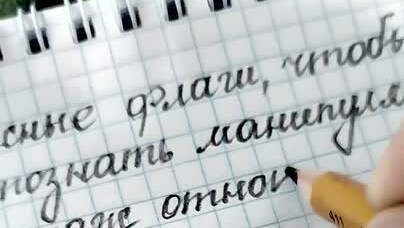 сные флаги, чтобы
познать манипуля
отнош